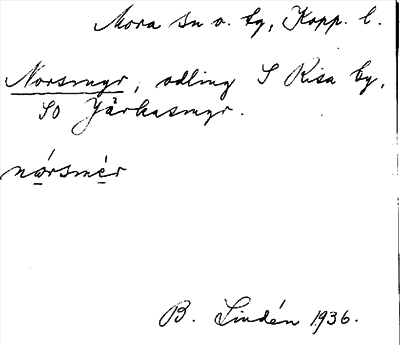 Mora sn o. tg, Kopp. l.
Norsmyr, odling S Risa by,
SO Jårkasmyr.
nórsmér
B. Lindén 1936.